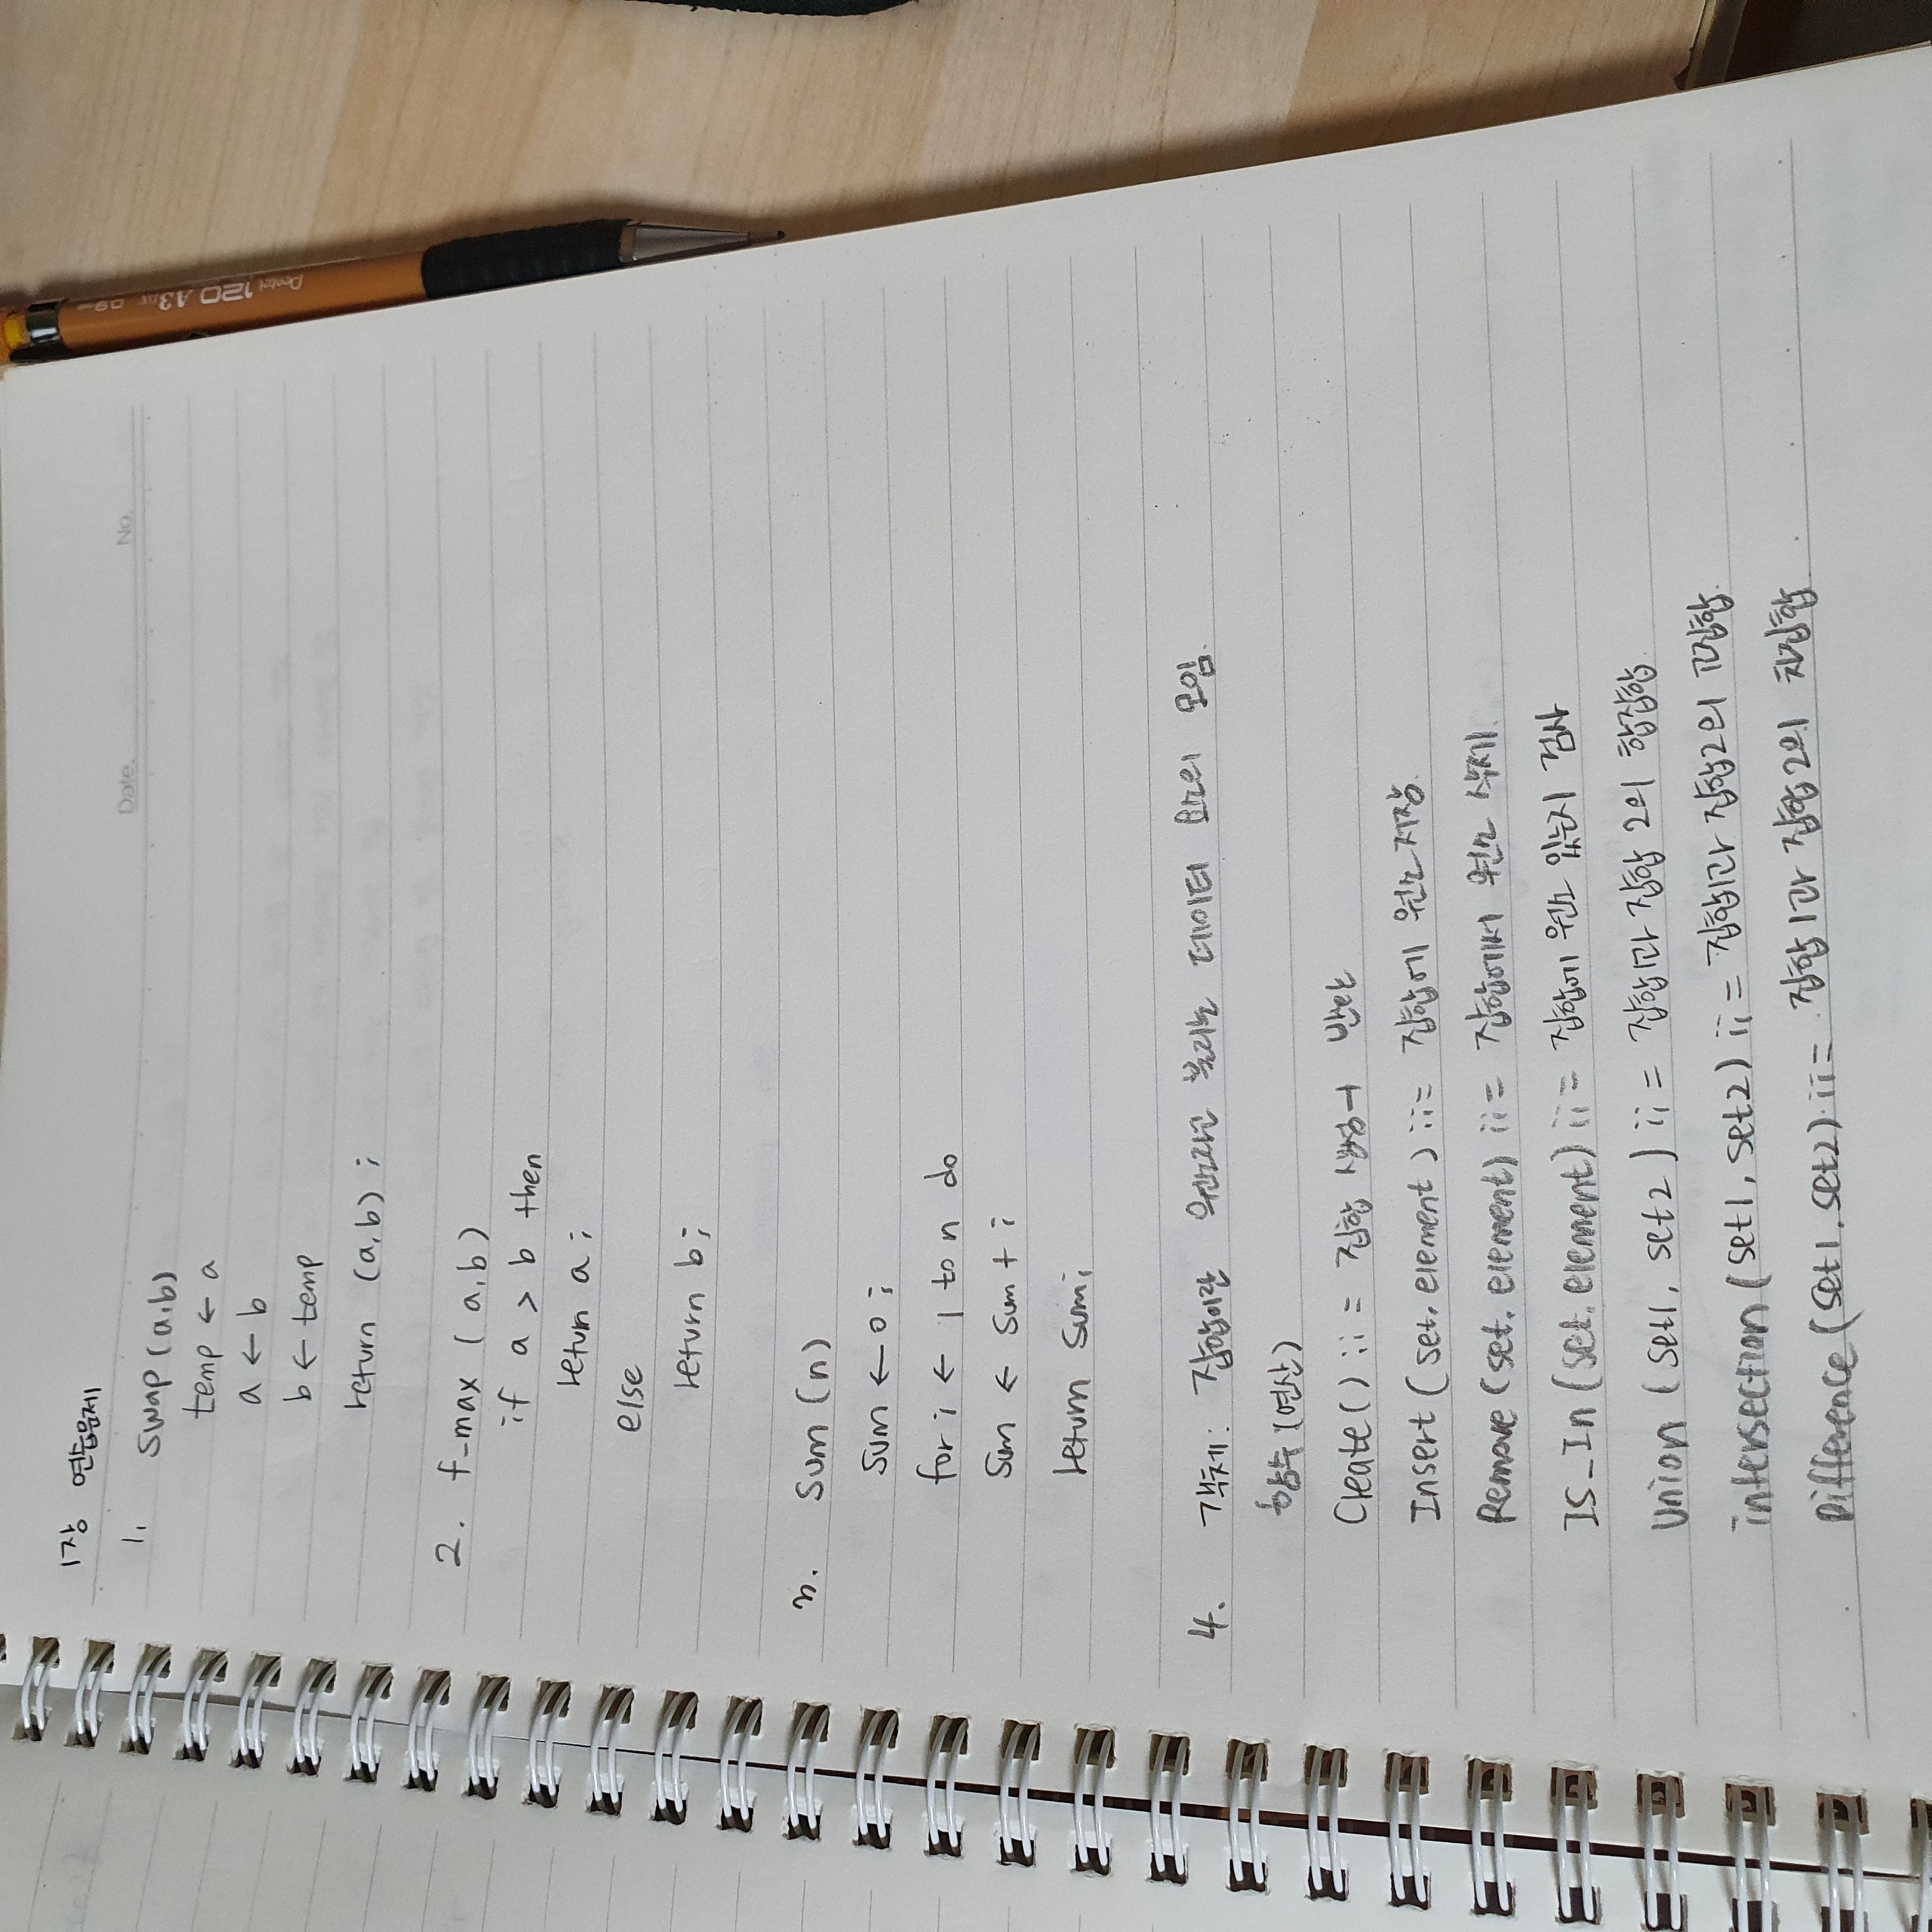 1장 연습문제
Date. No.
1. swap (a,b)
temp ← a
a ← b
b ← temp
return (a,b) ;
2. f-max ( a,b)
if a > b then
return a ;
else
return b ;
3. Sum (n)
Sum ← 0 ;
for i ← 1 to n do
Sum ← Sum + i
return Sum;
4. 객체: 집합이란 원소라고 불리는 데이터 요소의 모임.
함수 (연산)
Create() ;; = 집합 생성 → 반환
Insert ( set, element ) ;; = 집합에 원소 저장.
Remove (set, element) ;; = 집합에서 원소 삭제.
IS_In (set, element) ;; = 집합에 원소 있는지 검사
Union ( set1, set2 ) ;; = 집합1과 집합 2의 합집합.
intersection ( set1, set2) ;; = 집합1과 집합2의 교집합.
Difference (set1, set2) ;; = 집합1과 집합2의 차집합.
Pentel 120 A3DX 0.9